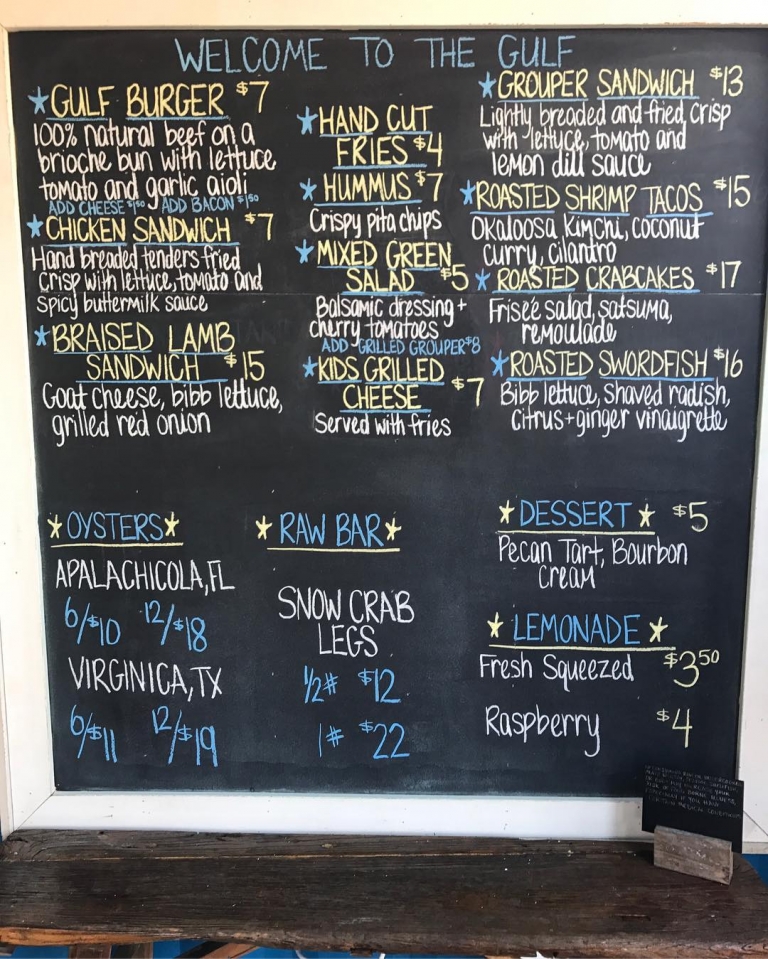 WELCOME TO THE GULF
★GULF BURGER $7
100% natural beef on a
brioche bun with lettuce
tomato and garlic aioli
ADD CHEESE $1.50 ADD BACON $1.50
★CHICKEN SANDWICH $7
Hand breaded tenders fried
crisp with lettuce, tomato and
spicy buttermilk sauce
★BRAISED LAMB
SANDWICH $15
Goat cheese, bibb lettuce,
grilled red onion
★HAND CUT
FRIES $4
★HUMMUS $7
Crispy pita chips
★MIXED GREEN
SALAD $5
Balsamic dressing +
cherry tomatoes
ADD GRILLED GROUPER $8
★KIDS GRILLED
CHEESE $7
Served with fries
★GROUPER SANDWICH $13
Lightly breaded and fried, crisp
with lettuce, tomato and
lemon dill sauce
★ROASTED SHRIMP TACOS $15
Okaloosa Kimchi, coconut
curry, cilantro
★ROASTED CRABCAKES $17
Friseé salad, satsuma,
remoulade
★ROASTED SWORDFISH $16
Bibb lettuce, shaved radish,
citrus+ginger vinaigrette
★OYSTERS★
APALACHICOLA, FL
6/$10 12/$18
VIRGINICA, TX
6/$11 12/$19
★RAW BAR★
SNOW CRAB
LEGS
1/2# $12
1# $22
★DESSERT★ $5
Pecan Tart, Bourbon
Cream
★LEMONADE★
Fresh Squeezed $3.50
Raspberry $4